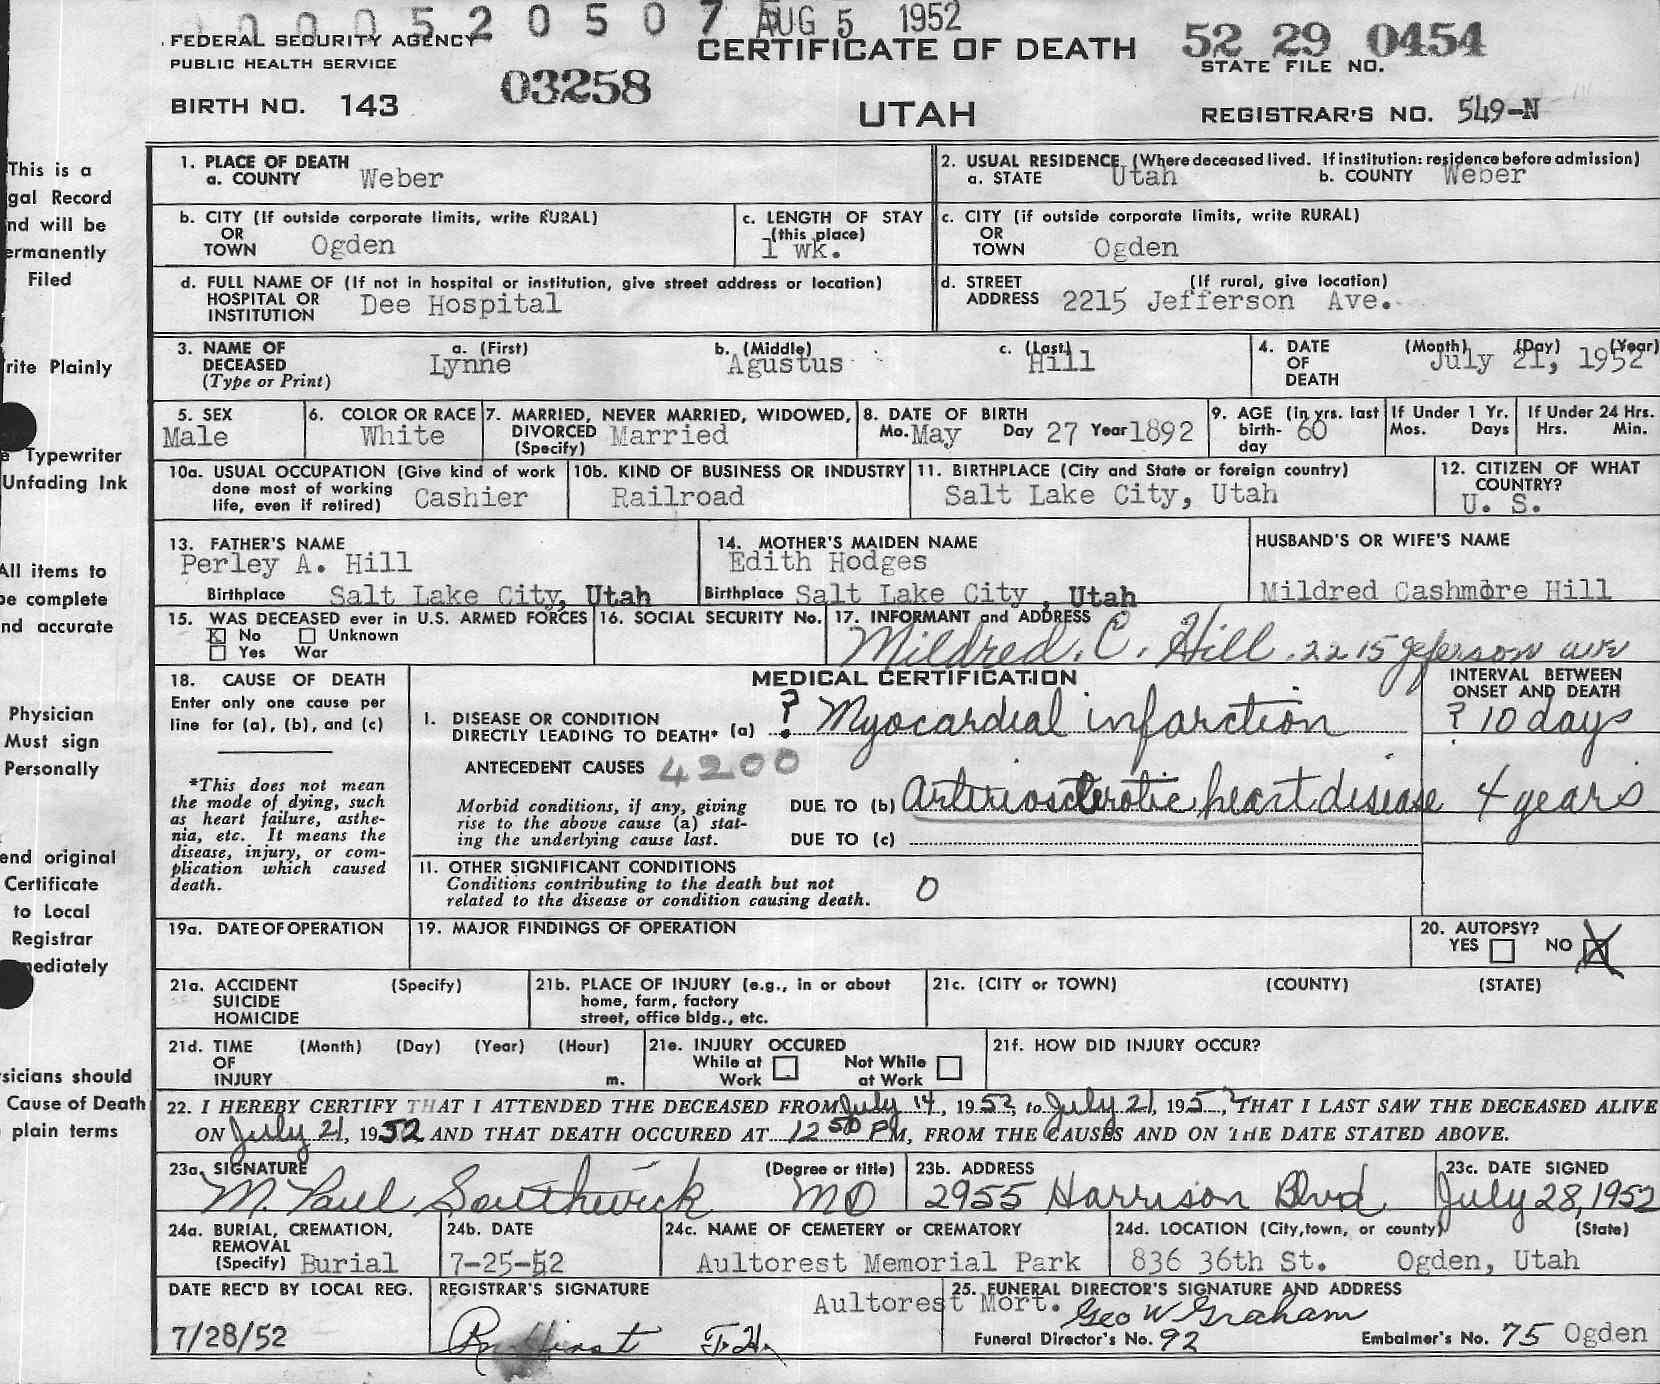 0 0 0 5 2 0 5 0 7 AUG 5 1952
FEDERAL SECURITY AGENCY
PUBLIC HEALTH SERVICE
CERTIFICATE OF DEATH
52 29 0454
STATE FILE NO.
BIRTH NO. 143
03258
UTAH
REGISTRAR'S NO. 549-N
This is a
gal Record
nd will be
ermanently
Filed
rite Plainly
e Typewriter
Unfading Ink
All items to
be complete
nd accurate
Physician
Must sign
Personally
end original
Certificate
to Local
Registrar
mediately
sicians should
Cause of Death
plain terms
1. PLACE OF DEATH
a. COUNTY Weber
2. USUAL RESIDENCE (Where deceased lived. If institution: residence before admission)
a. STATE Utah b. COUNTY Weber
b. CITY (If outside corporate limits, write RURAL)
OR
TOWN Ogden
c. LENGTH OF STAY
(this place)
1 wk.
c. CITY (if outside corporate limits, write RURAL)
OR
TOWN Ogden
d. FULL NAME OF (If not in hospital or institution, give street address or location)
HOSPITAL OR
INSTITUTION Dee Hospital
d. STREET (If rural, give location)
ADDRESS 2215 Jefferson Ave.
3. NAME OF DECEASED
(Type or Print)
a. (First) Lynne
b. (Middle) Agustus
c. (Last) Hill
4. DATE OF DEATH
(Month) (Day) (Year)
July 21, 1952
5. SEX
Male
6. COLOR OR RACE
White
7. MARRIED, NEVER MARRIED, WIDOWED,
DIVORCED Married
(Specify)
8. DATE OF BIRTH
Mo. May Day 27 Year 1892
9. AGE (in yrs. last
birth- 60
day
If Under 1 Yr.
Mos. Days
If Under 24 Hrs.
Hrs. Min.
10a. USUAL OCCUPATION (Give kind of work
done most of working
life, even if retired) Cashier
10b. KIND OF BUSINESS OR INDUSTRY
Railroad
11. BIRTHPLACE (City and State or foreign country)
Salt Lake City, Utah
12. CITIZEN OF WHAT
COUNTRY?
U. S.
13. FATHER'S NAME
Perley A. Hill
Birthplace Salt Lake City, Utah
14. MOTHER'S MAIDEN NAME
Edith Hodges
Birthplace Salt Lake City, Utah
HUSBAND'S OR WIFE'S NAME
Mildred Cashmore Hill
15. WAS DECEASED ever in U.S. ARMED FORCES
X No Unknown
Yes War
16. SOCIAL SECURITY No.
17. INFORMANT and ADDRESS
Mildred. C. Hill. 2215 Jeferson ave
18. CAUSE OF DEATH
Enter only one cause per
line for (a), (b), and (c)
*This does not mean
the mode of dying, such
as heart failure, asthe-
nia, etc. It means the
disease, injury, or com-
plication which caused
death.
MEDICAL CERTIFICATION
INTERVAL BETWEEN
ONSET AND DEATH
I. DISEASE OR CONDITION
DIRECTLY LEADING TO DEATH* (a) ? Myocardial infarction
? 10 days
ANTECEDENT CAUSES 4200
Morbid conditions, if any, giving
rise to the above cause (a) stat-
ing the underlying cause last.
DUE TO (b) Arteriosclerotic heart disease 4 years
DUE TO (c)
11. OTHER SIGNIFICANT CONDITIONS
Conditions contributing to the death but not
related to the disease or condition causing death.
0
19a. DATE OF OPERATION
19. MAJOR FINDINGS OF OPERATION
20. AUTOPSY?
YES NO X
21a. ACCIDENT (Specify)
SUICIDE
HOMICIDE
21b. PLACE OF INJURY (e.g., in or about
home, farm, factory
street, office bldg., etc.
21c. (CITY or TOWN) (COUNTY) (STATE)
21d. TIME (Month) (Day) (Year) (Hour)
OF
INJURY m.
21e. INJURY OCCURED
While at Work
Not While at Work
21f. HOW DID INJURY OCCUR?
22. I HEREBY CERTIFY THAT I ATTENDED THE DECEASED FROM July 14, 1952, to July 21, 1952, THAT I LAST SAW THE DECEASED ALIVE
ON July 21, 1952 AND THAT DEATH OCCURED AT 12 50 PM, FROM THE CAUSES AND ON THE DATE STATED ABOVE.
23a. SIGNATURE (Degree or title)
M. Paul Southwick MD
23b. ADDRESS
2955 Harrison Blvd
23c. DATE SIGNED
July 28, 1952
24a. BURIAL, CREMATION,
REMOVAL
(Specify) Burial
24b. DATE
7-25-52
24c. NAME OF CEMETERY or CREMATORY
Aultorest Memorial Park
24d. LOCATION (City, town, or county) (State)
836 36th St. Ogden, Utah
DATE REC'D BY LOCAL REG.
7/28/52
REGISTRAR'S SIGNATURE
25. FUNERAL DIRECTOR'S SIGNATURE AND ADDRESS
Aultorest Mort. Geo W Graham
Funeral Director's No. 92 Embalmer's No. 75 Ogden